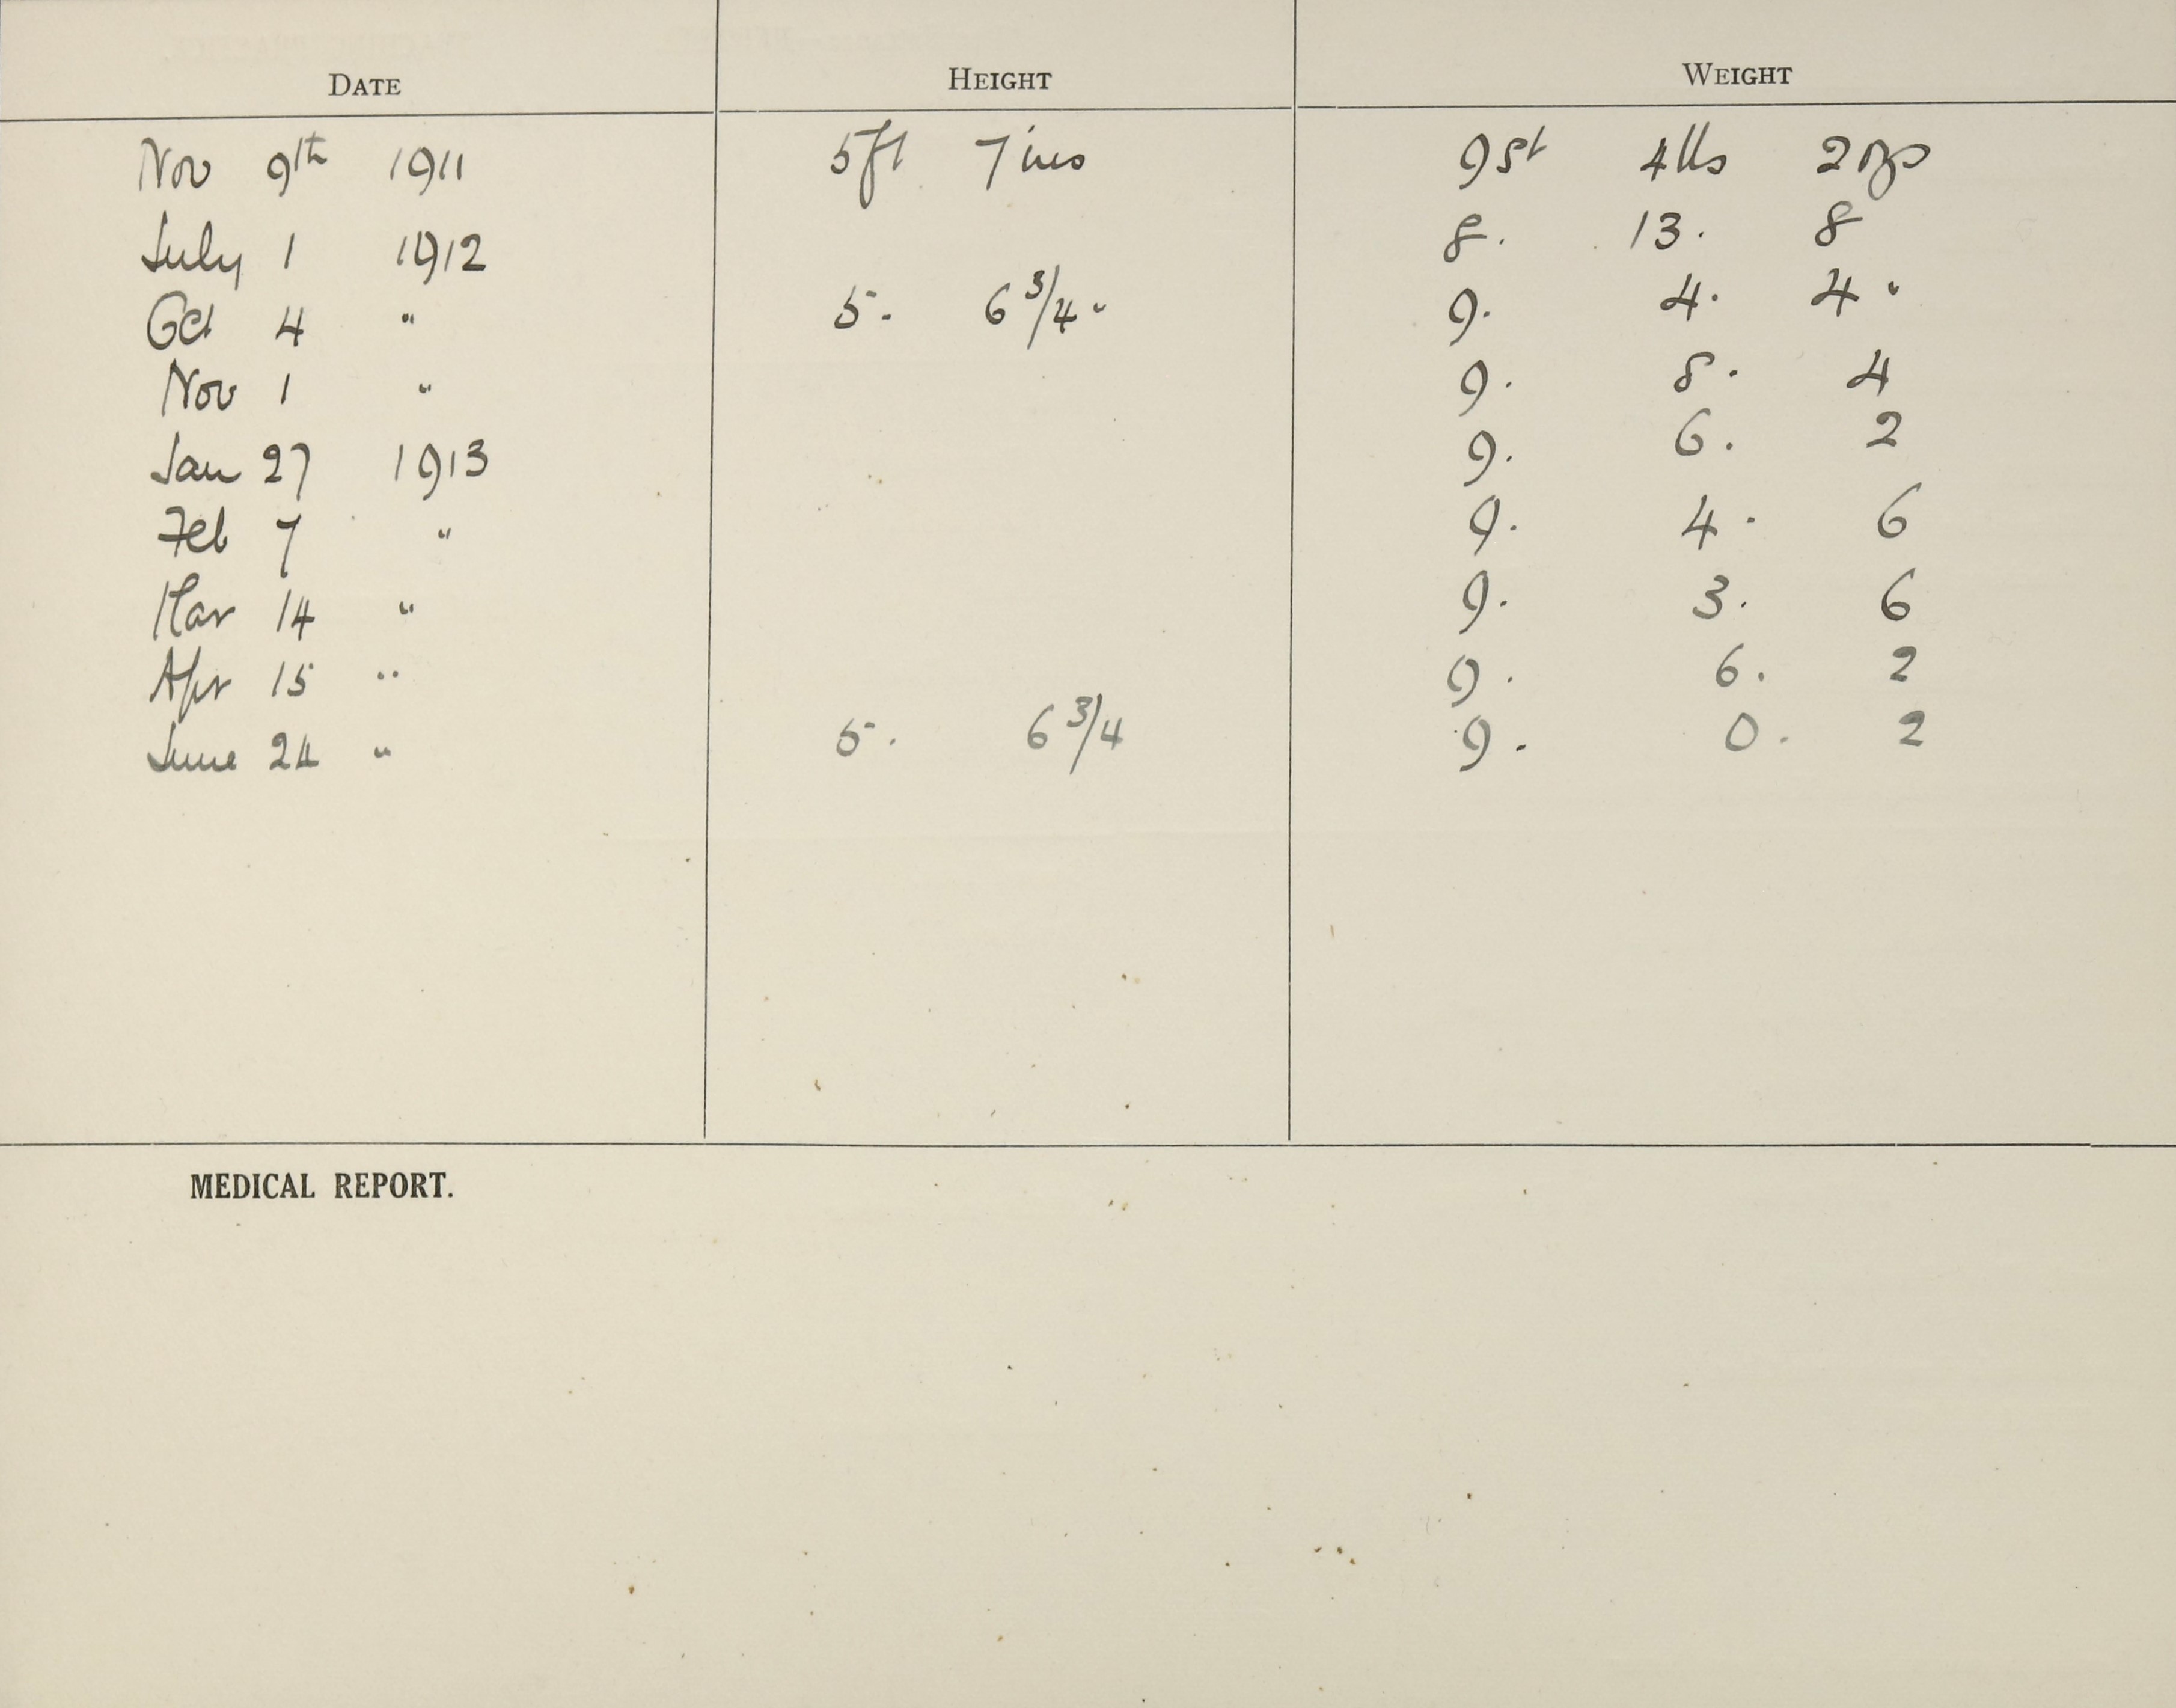 DATE HEIGHT WEIGHT
Nov 9th 1911 5ft 7ins 9st 4lbs 2ozs
July 1 1912 8. 13. 8
Oct 4 " 5. 6 3/4 " 9. 4. 4 "
Nov 1 " 9. 8. 4
Jan 27 1913 9. 6. 2
Feb 7 " 9. 4. 6
Mar 14 " 9. 3. 6
Apr 15 " 9. 6. 2
June 24 " 5. 6 3/4 9. 0. 2
MEDICAL REPORT.